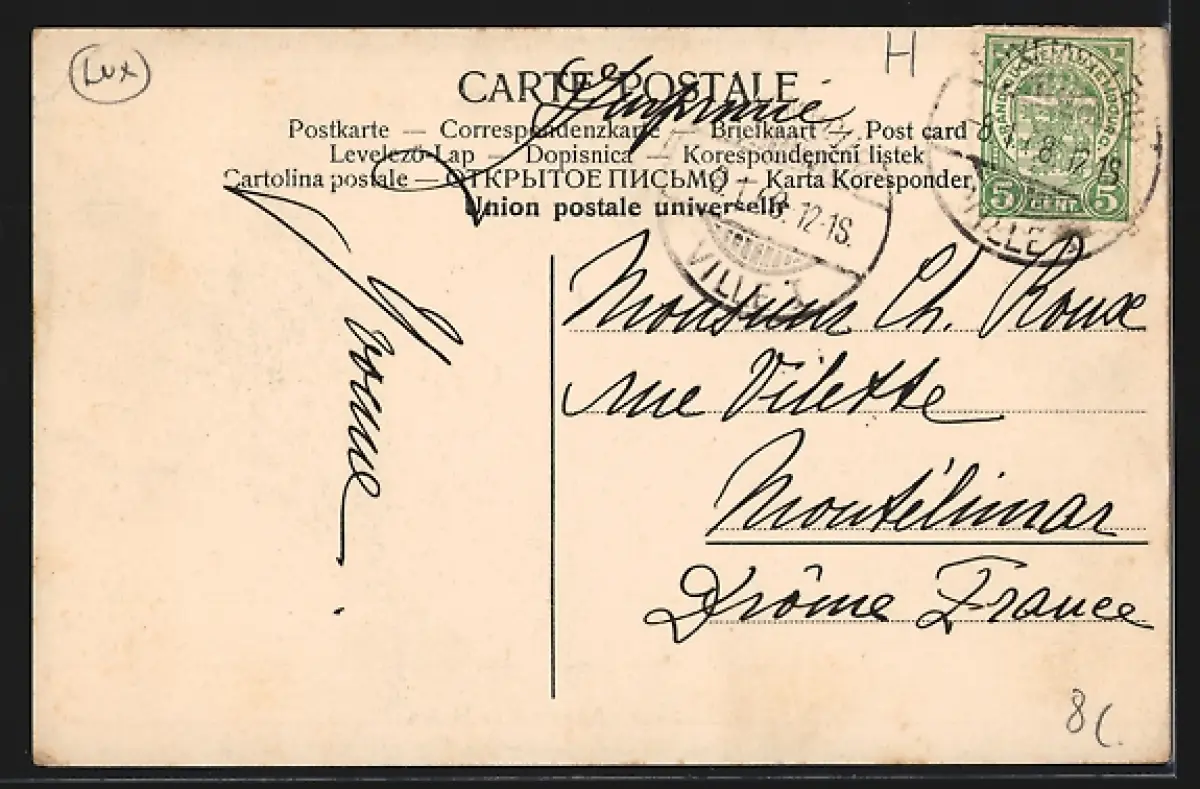 Lux
H
CARTE POSTALE
Imprimé
Postkarte — Correspondenzkarte — Briefkaart — Post card
Levelező-Lap — Dopisnica — Korespondenční listek
Cartolina postale — ОТКРЫТОЕ ПИСЬМО — Karta Koresponder
Union postale universelle
12-1S.
VILLE
8 12-1S
VILLE
5 5
Monsieur Ch. Roux
rue Vilette
Montélimar
Drôme France
8